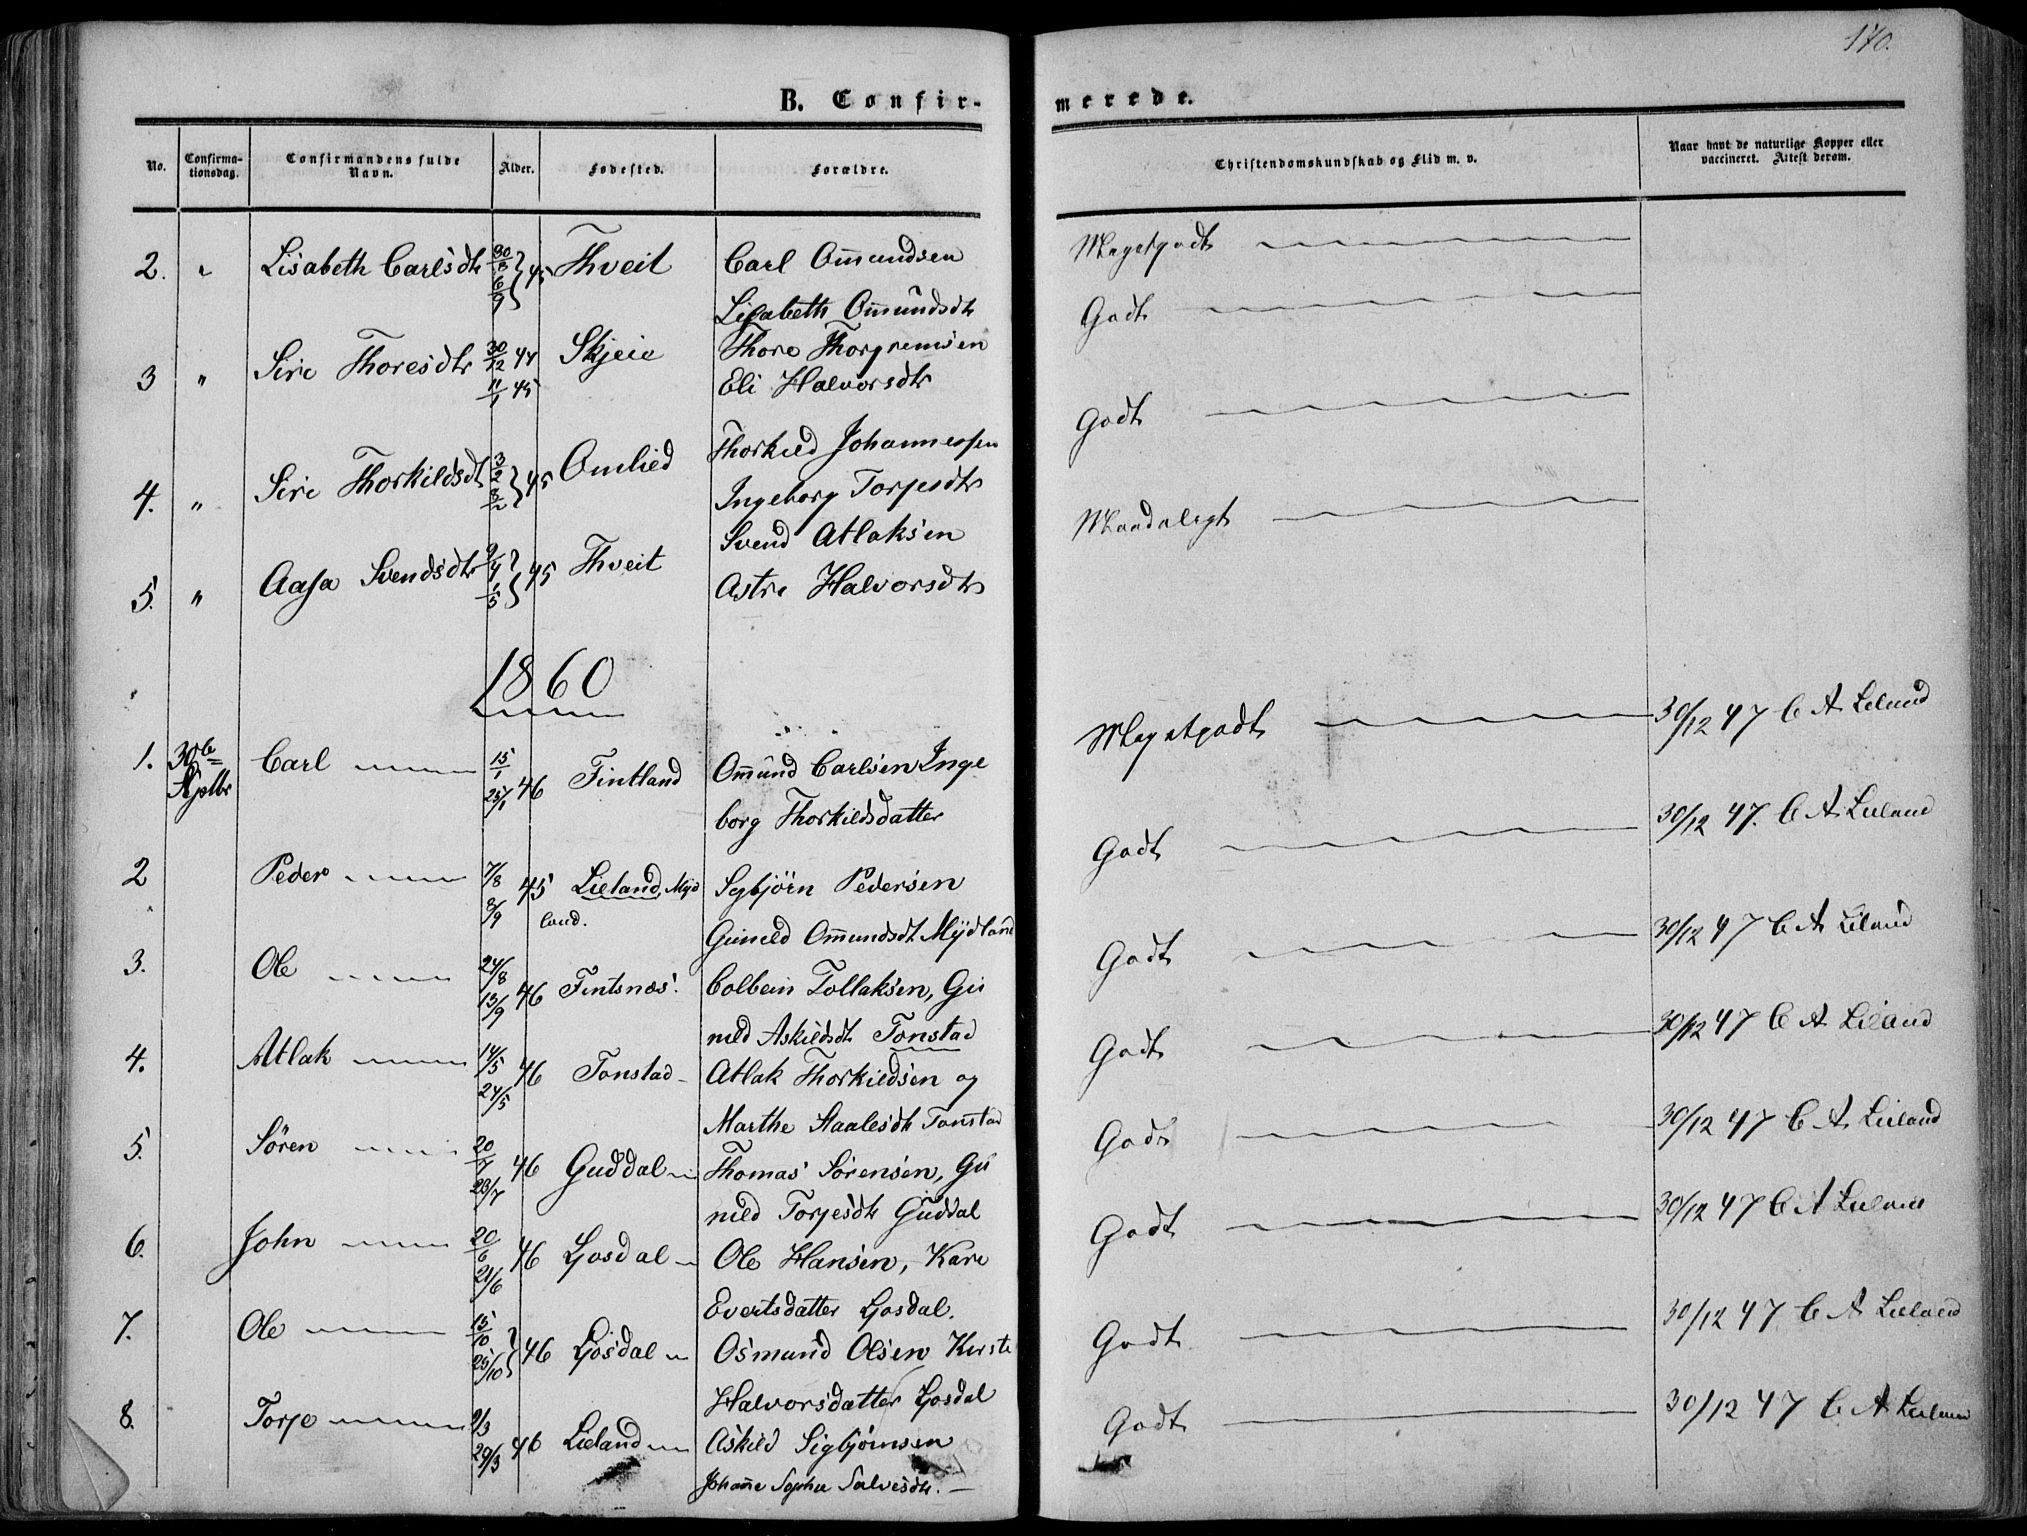 170.
B. Confirmerede.
No. Confirmationsdag. Confirmandens fulde Navn. Alder. Fødested. Forældre. Christendomskundskab og Flid m. v. Naar havt de naturlige Kopper eller vaccineret. Attest derom.
2. " Lisabeth Carlsdtr 30/8 6/9 } 45 Thveit Carl Omundsen Megetgodt
Lisabeth Omundsdtr Godt
3 " Siri Thoresdtr 30/12 44 Skjeie Thore Thorgremsen
11/1 45 Eli Halvorsdtr Godt
4. " Siri Thorkildsdt 3/2 8/2 } 45 Omlied Thorkild Johannessen
Ingeborg Torjesdtr Maadeligt
5. " Aasa Svendsdtr 9/4 1/5 } 45 Thveit Svend Atlaksen
Astri Halvorsdtr
1860
1. 30te Septbr Carl 15/1 25/1 46 Fintland Omund Carlsen Inge Megetgodt 30/12 47 C A Lieland
borg Thorkildsdatter
2 Peder 7/8 8/9 45 Lieland, Myd Sigbjörn Pedersen Godt 30/12 47. C A Lieland
land. Guneld Omundsdt. Mydland
3. Ole 24/8 13/9 46 Fintsnæs. Colbein Tollaksen, Gu Godt 30/12 47 C A Lieland
nild Askildsdt Tonstad
4. Atlak 14/5 24/5 46 Tonstad Atlak Thorkildsen og Godt 30/12 47 C A Lieland
Marthe Staalesdt Tonstad
5. Sören 20/7 23/7 46 Guddal Thomas Sörensen, Gu Godt 30/12 47 C A Lieland
nild Torjesdt Guddal
6. John 20/6 21/6 46 Josdal Ole Hansen, Kari Godt 30/12 47 C A Lieland
Evertsdatter Josdal.
7. Ole 15/10 25/10 } 46 Josdal Osmund Olsen Kirsti Godt 30/12 47 C A Lieland
Halvorsdatter Josdal
8. Torje 2/3 29/3 46 Lieland Askild Sigbjørnsen Godt 30/12 47 C A Lieland
Johanne Sophie Salvesdt.